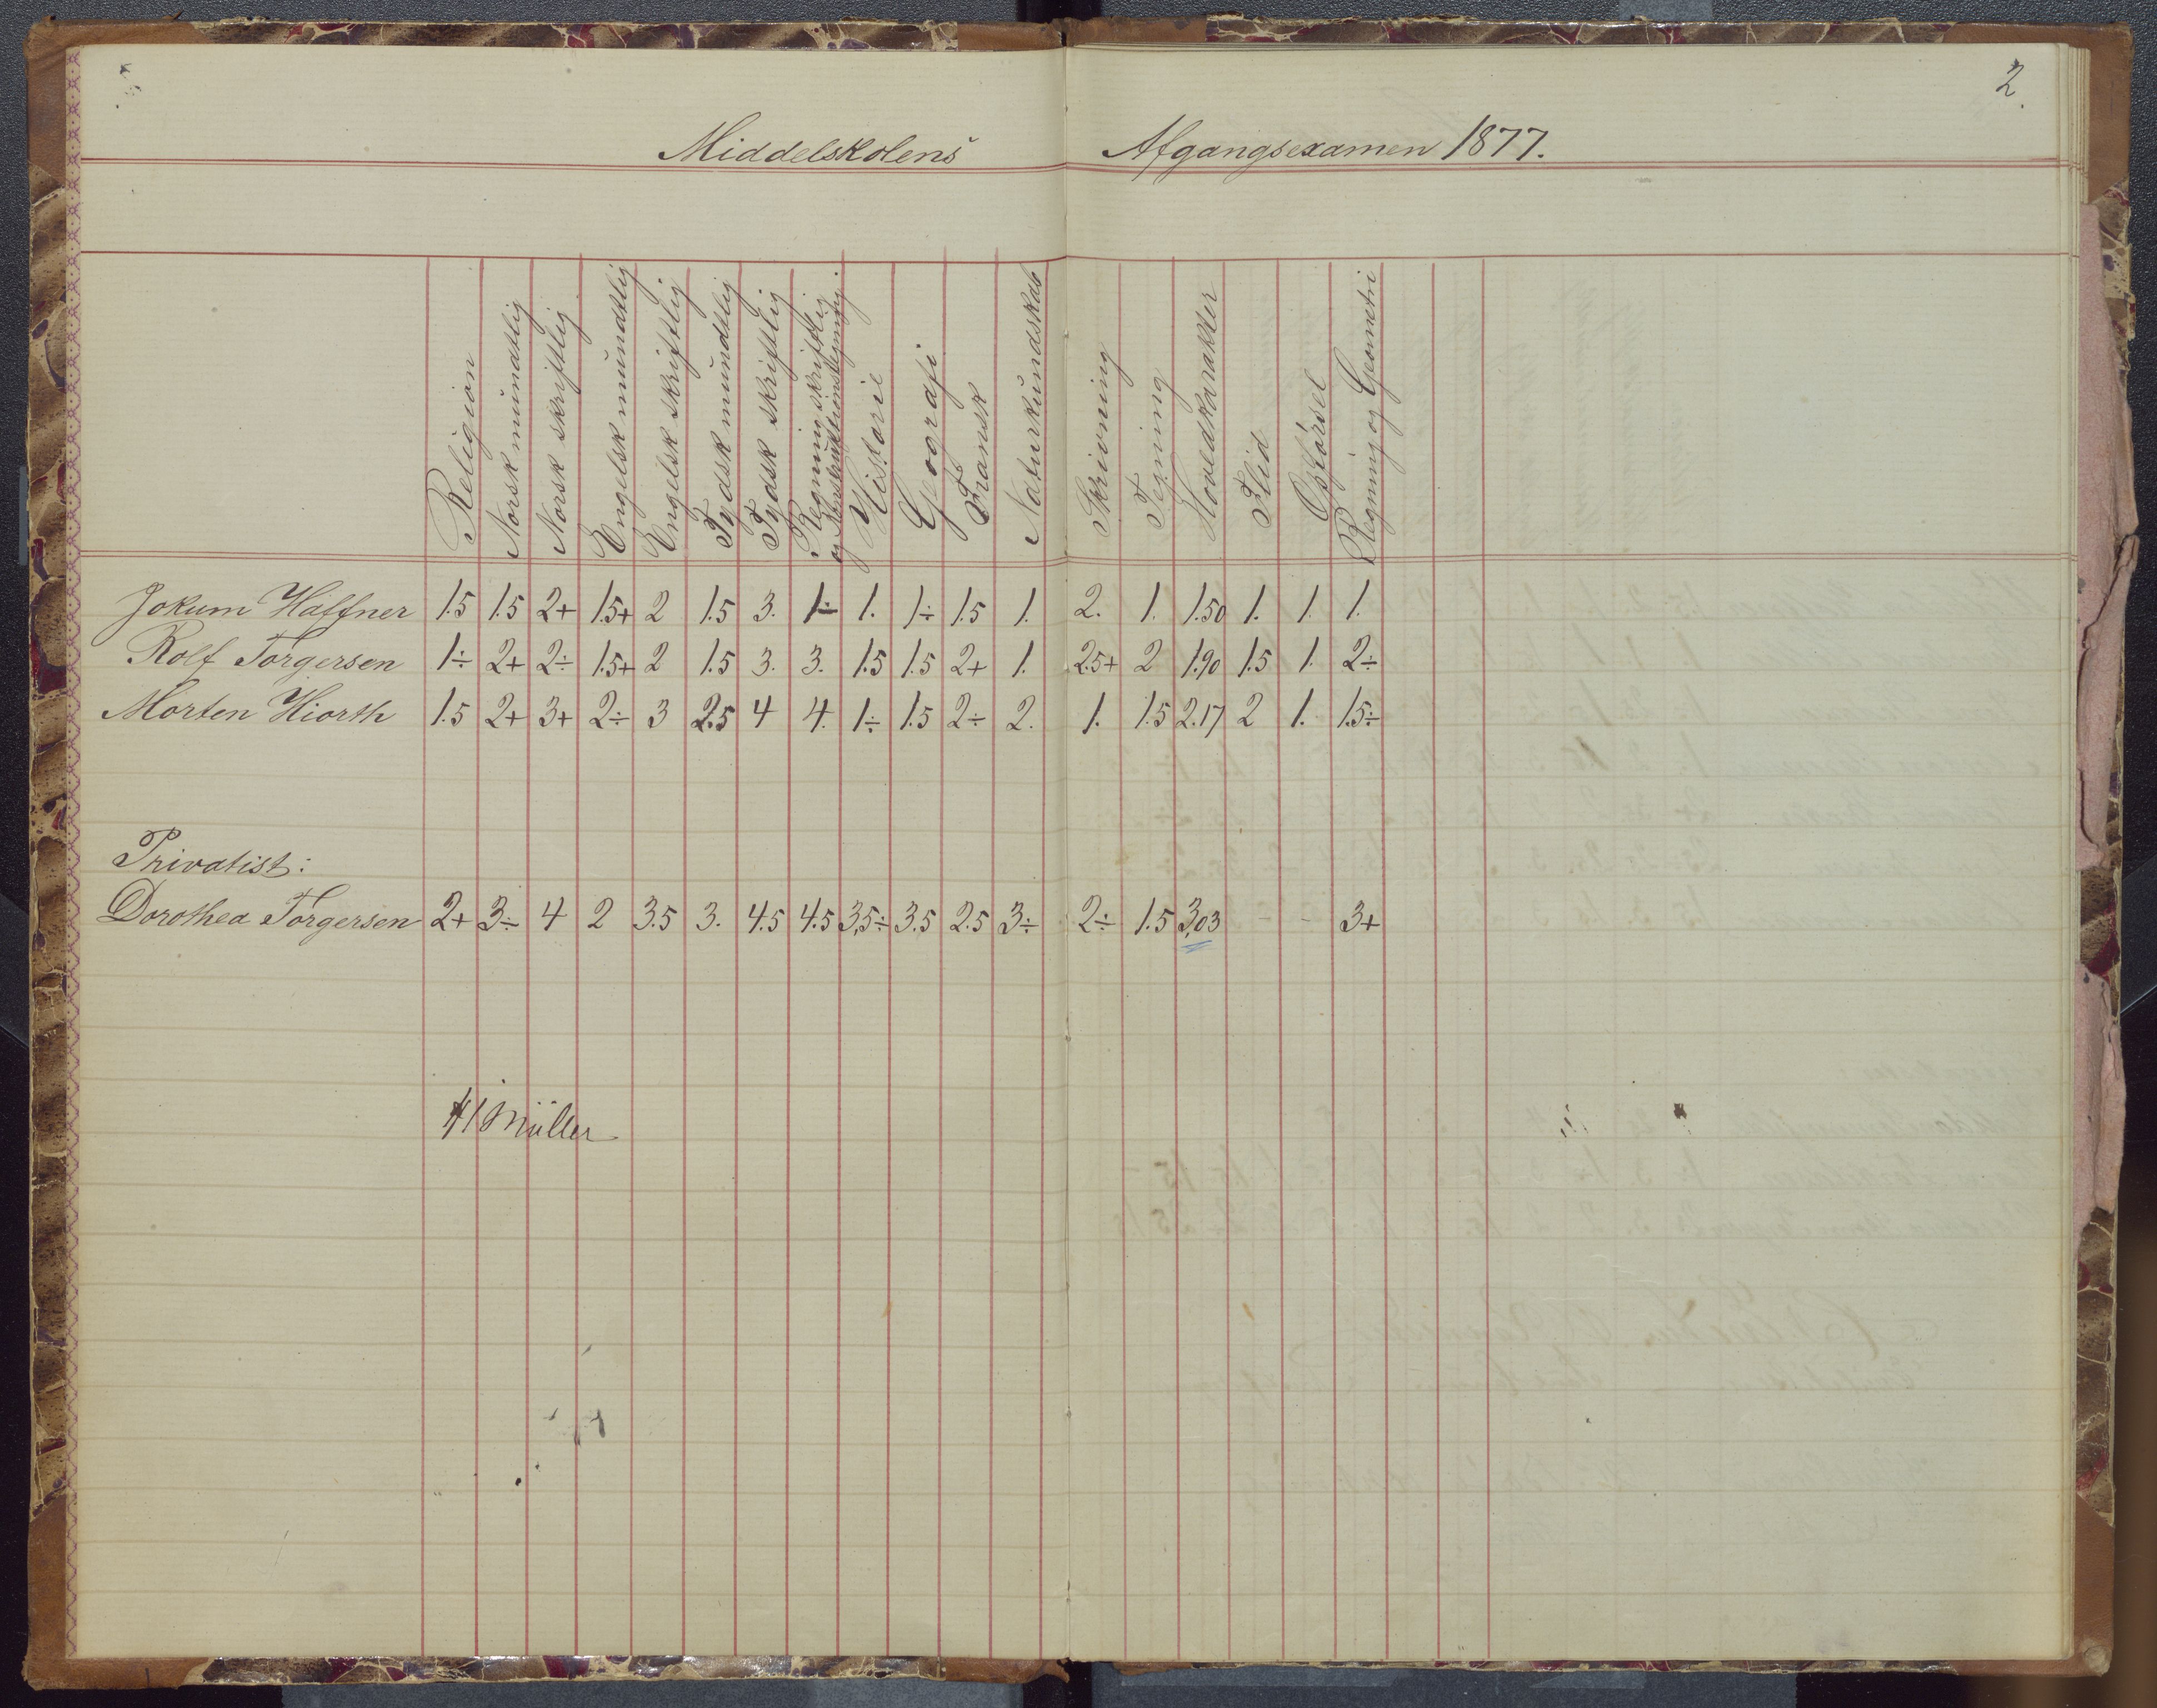 2.
Middelskolens Afgangsexamen 1877.
Religion
Norsk mundtlig
Norsk skriftlig
Engelsk mundtlig
Engelsk skriftlig
Tydsk mundtlig
Tydsk skriftlig
Regning skriftlig
og Konstruktionstegning.
Historie
Geografi
Fransk
Naturkundskab
Skrivning
Tegning
Hovedkarakter
Flid
Opførsel
Regning og Geometri
Jokum Häffner 1.5 1.5 2+ 1.5+ 2 1.5 3. 1÷ 1. 1÷ 1.5 1. 2. 1. 1.50 1. 1. 1.
Rolf Torgersen 1÷ 2+ 2÷ 1.5+ 2 1.5 3. 3. 1.5 1.5 2+ 1. 2.5+ 2 1.90 1.5 1. 2÷
Morten Hiorth 1.5 2+ 3+ 2÷ 3 2.5 4 4. 1÷ 1.5 2÷ 2. 1. 1.5 2.17 2 1. 1.5÷
Privatist:
Dorothea Torgersen 2+ 3÷ 4 2 3.5 3. 4.5 4.5 3,5÷ 3.5 2.5 3÷ 2÷ 1.5 3,03 - - 3+
H Müller